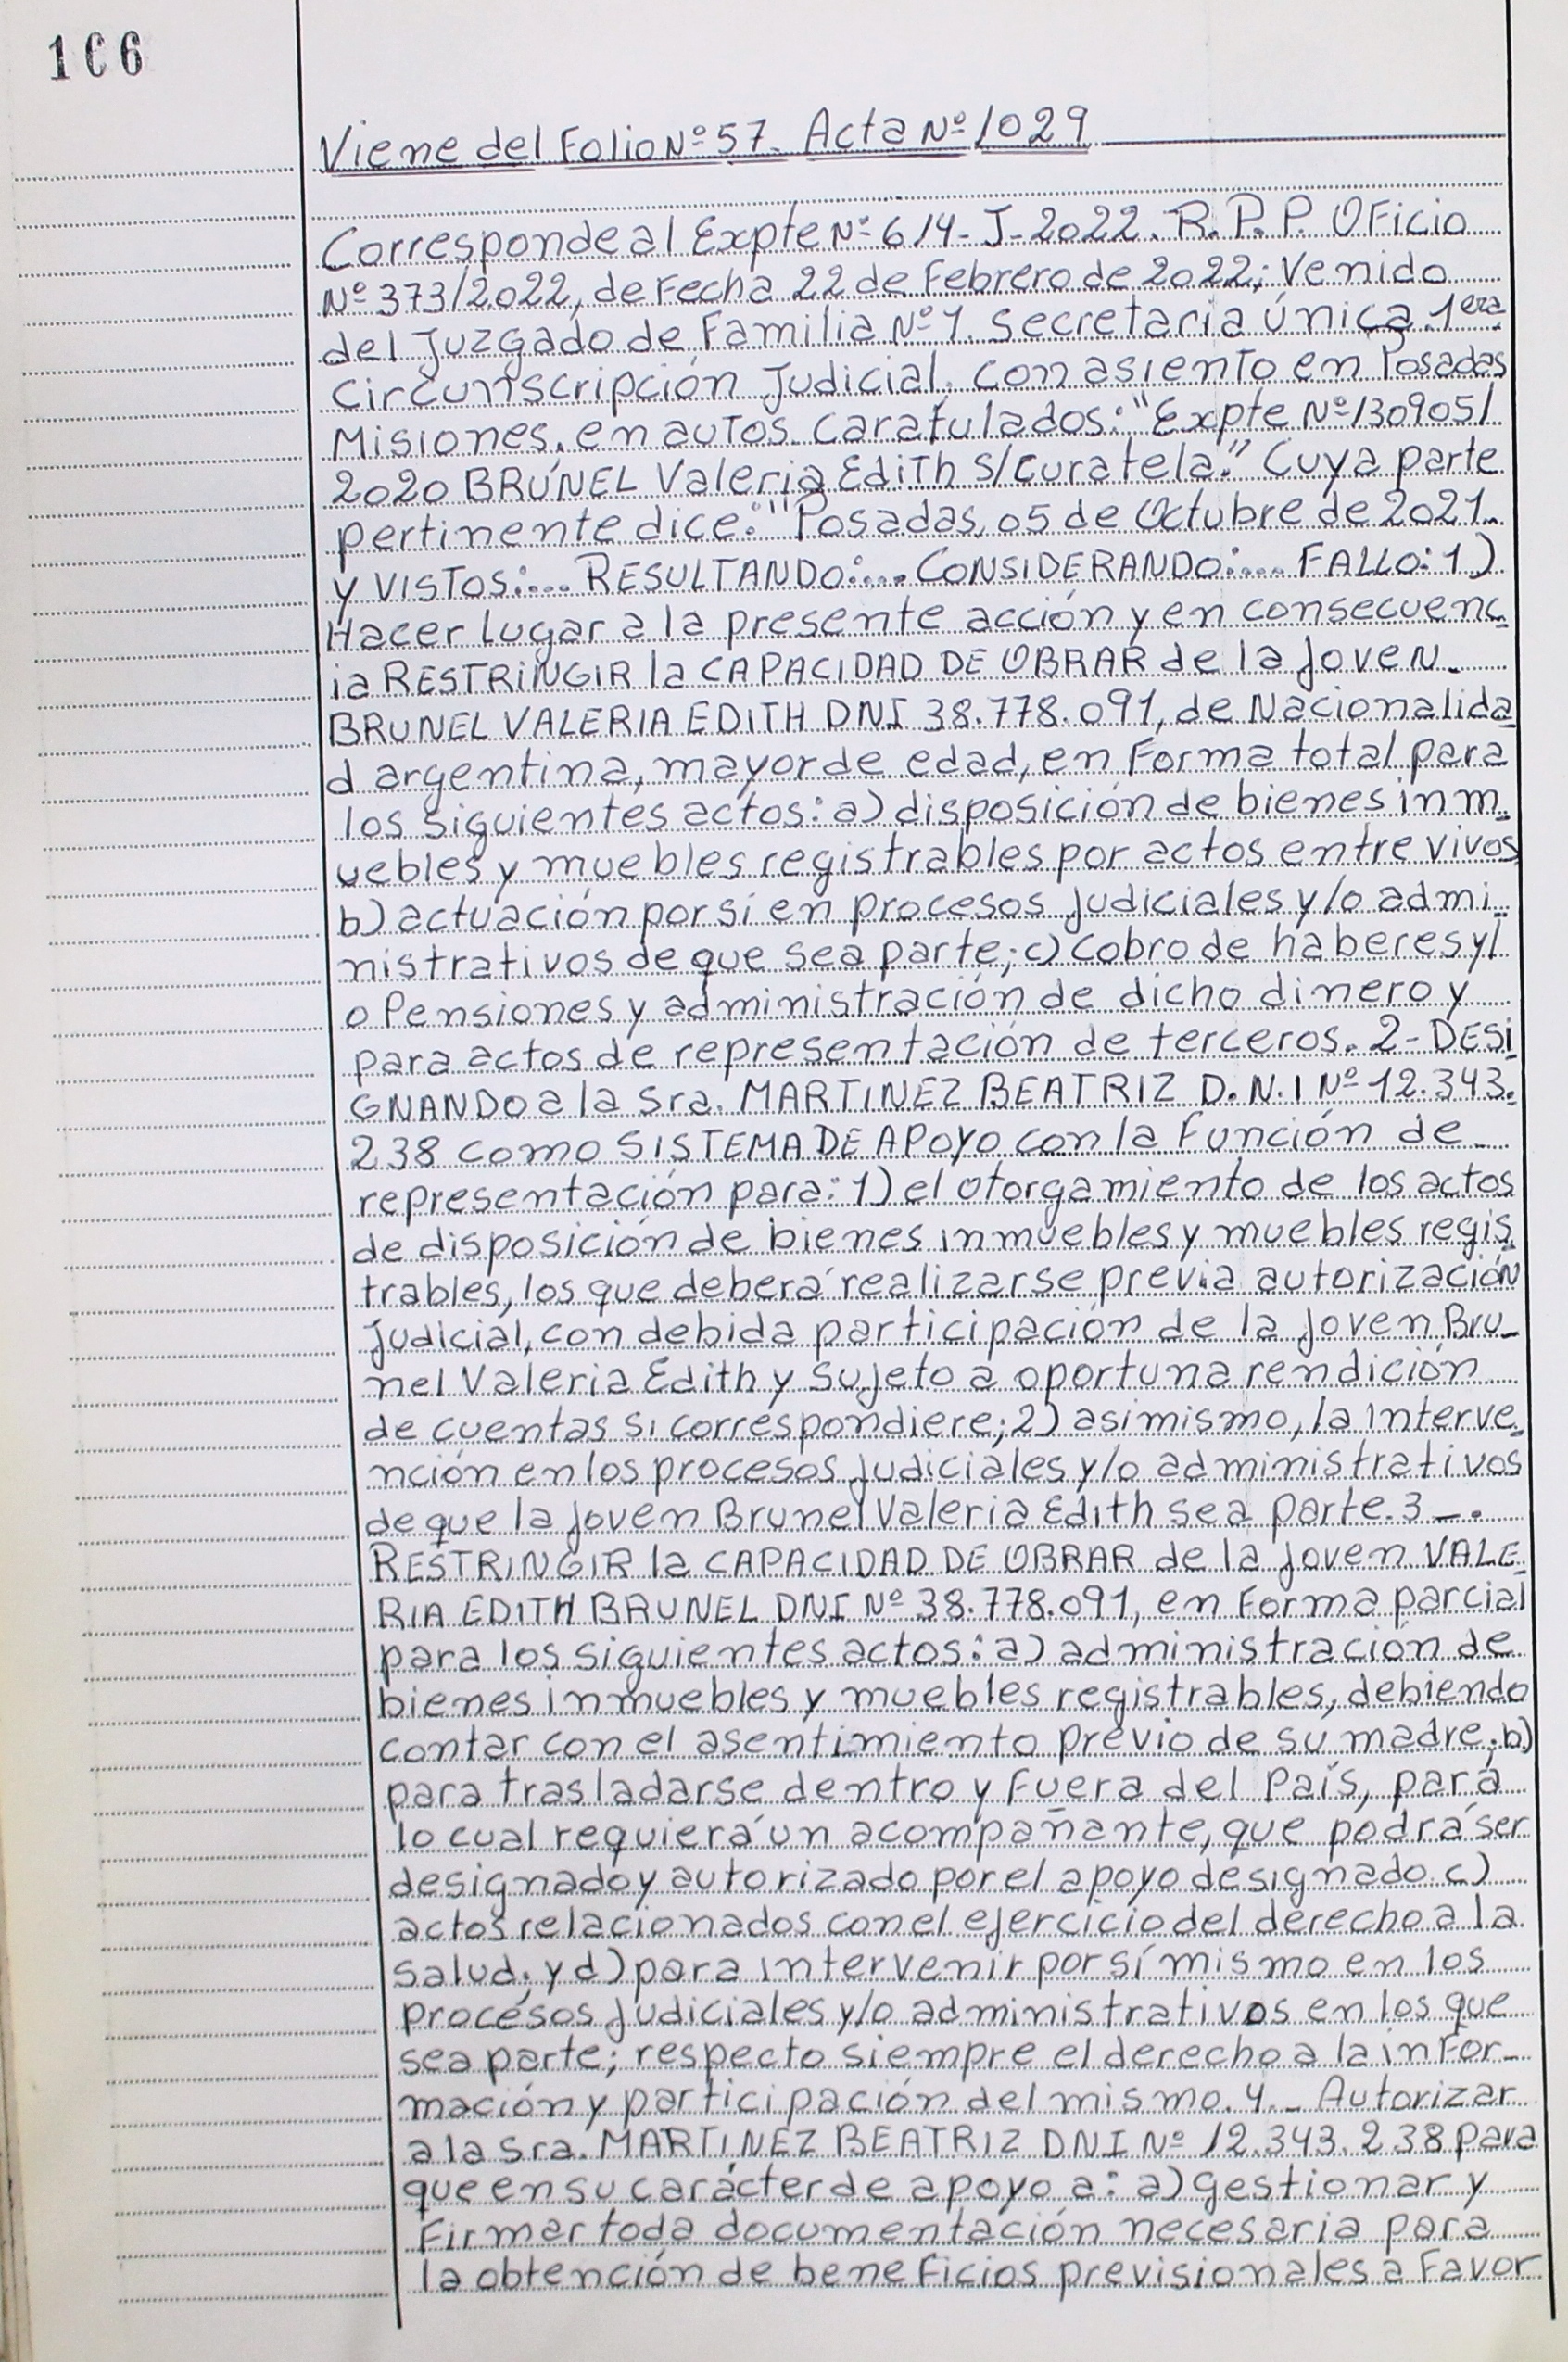 166
Viene del Folio Nº 57. Acta Nº 1029
Corresponde al Expte Nº 614-J-2022. R.P.P. Oficio
Nº 373/2022, de Fecha 22 de Febrero de 2022; Venido
del Juzgado de Familia Nº 1. Secretaria Única. 1era
Circunscripción Judicial. con asiento en Posadas
Misiones. en autos caratulados: "Expte Nº 130905/
2020 BRUNEL Valeria Edith S/Curatela." Cuya parte
pertinente dice: "Posadas, 05 de Octubre de 2021.
y VISTOS:... RESULTANDO:... CONSIDERANDO:... FALLO: 1)
Hacer Lugar a la presente acción y en consecuenc
ia RESTRINGIR la CAPACIDAD DE OBRAR de la Joven.
BRUNEL VALERIA EDITH DNI 38.778.091, de Nacionalida
d argentina, mayor de edad, en Forma total para
los siguientes actos: a) disposición de bienes inm
uebles y muebles registrables por actos entre vivos
b) actuación por sí en procesos judiciales y/o admi_
nistrativos de que sea parte; c) Cobro de haberes y/
o Pensiones y administración de dicho dinero y
para actos de representación de terceros. 2- DESI
GNANDO a la Sra. MARTINEZ BEATRIZ D.N.I Nº 12.343.
238 como SISTEMA DE APOYO con la Función de_
representación para: 1) el otorgamiento de los actos
de disposición de bienes inmuebles y muebles regis
trables, los que deberá realizarse previa autorización
Judicial, con debida participación de la Joven Bru_
nel Valeria Edith y sujeto a oportuna rendición
de cuentas si correspondiere; 2) asimismo, la interve_
nción en los procesos judiciales y/o administrativos
de que la joven Brunel Valeria Edith sea parte. 3_.
RESTRINGIR la CAPACIDAD DE OBRAR de la joven VALE_
RIA EDITH BRUNEL DNI Nº 38.778.091, en Forma parcial
para los siguientes actos: a) administración de
bienes inmuebles y muebles registrables, debiendo
contar con el asentimiento previo de su madre; b)
para trasladarse dentro y fuera del País, para
lo cual requierá un acompañante, que podrá ser
designado y autorizado por el apoyo designado. c)
actos relacionados con el ejercicio del derecho a la
salud; y d) para intervenir por sí mismo en los
procesos judiciales y/o administrativos en los que
sea parte; respecto siempre el derecho a la infor_
mación y participación del mismo. 4._ Autorizar
a la Sra. MARTINEZ BEATRIZ DNI Nº 12.343.238 para
que en su carácter de apoyo a: a) gestionar y
Firmar toda documentación necesaria para
la obtención de beneficios previsionales a Favor